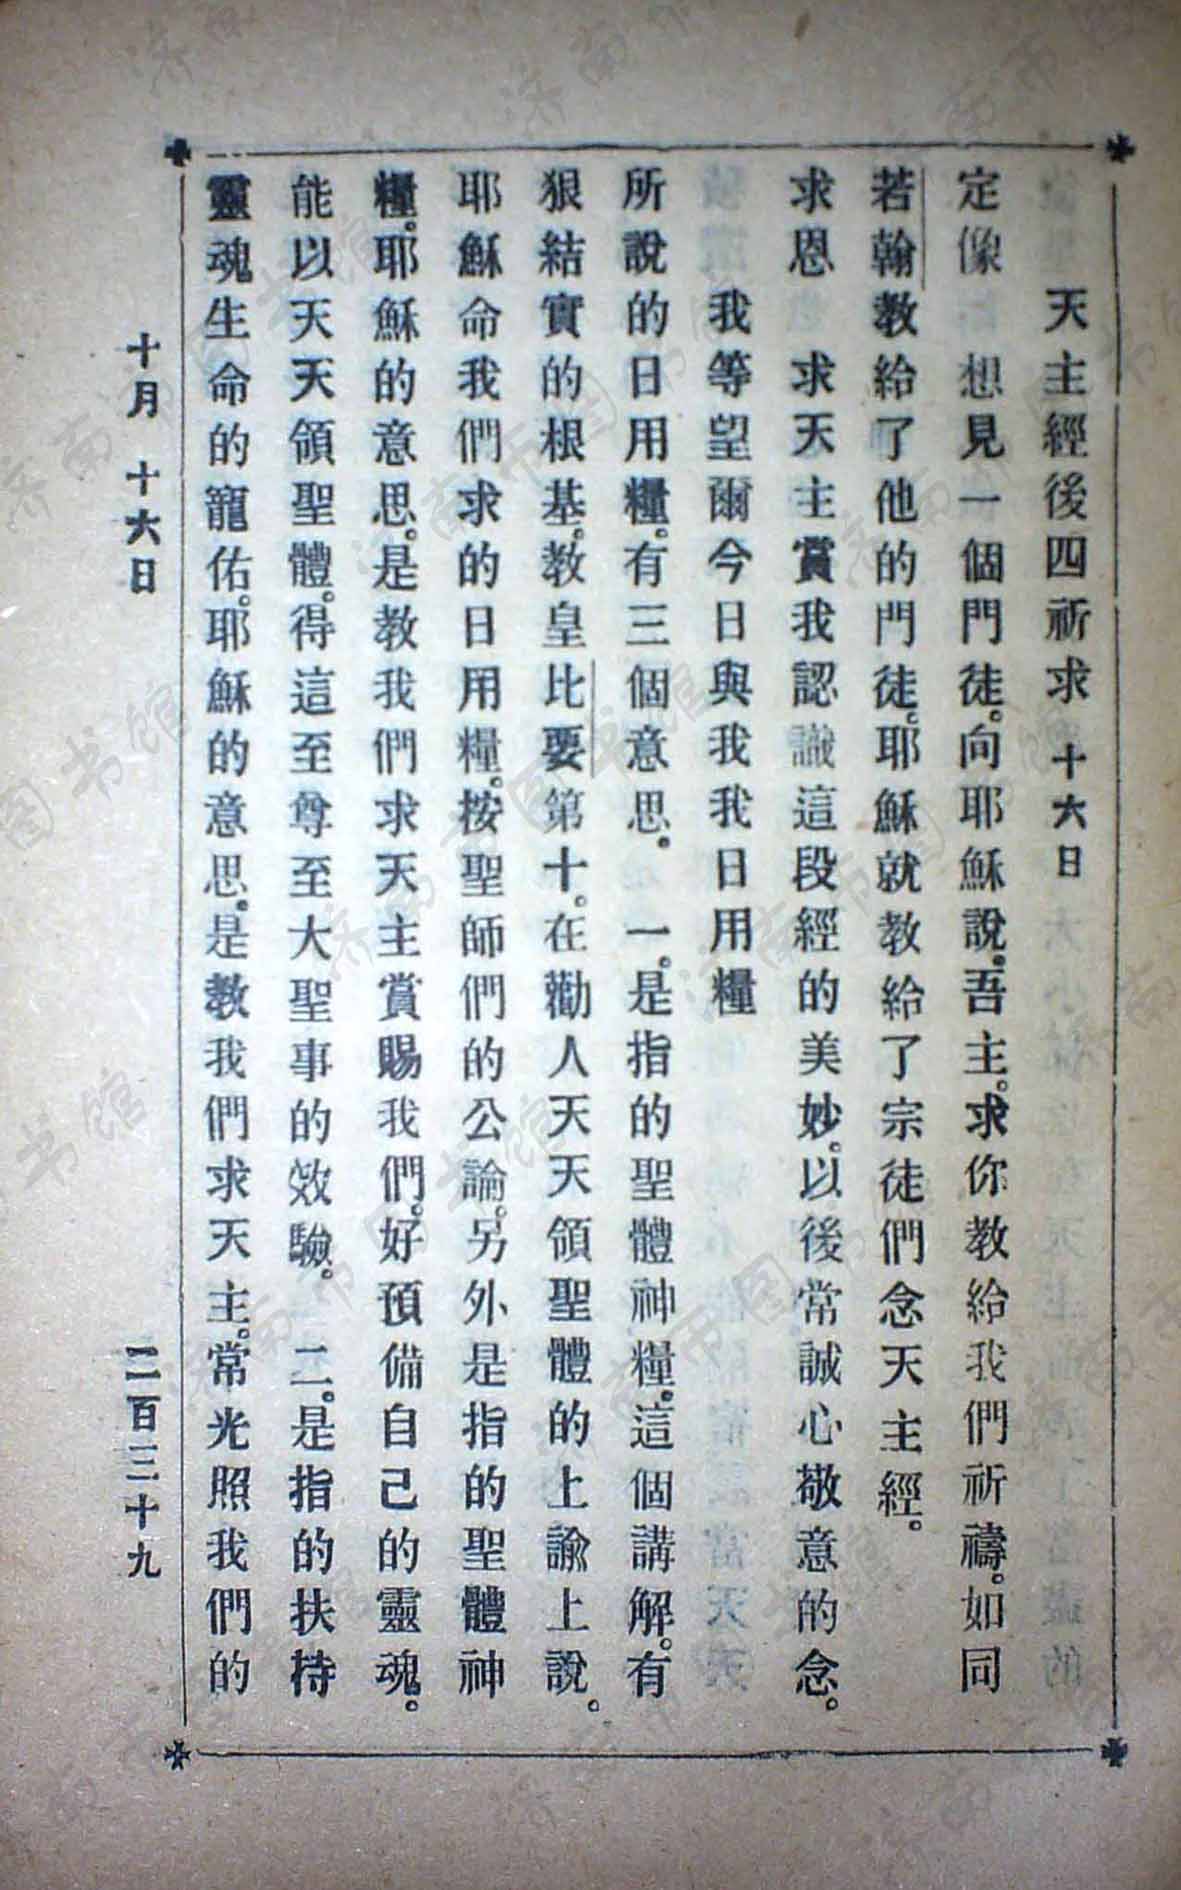 天主經後四祈求　十六日
定像　想見一個門徒。向耶穌說。吾主。求你教給我們祈禱。如同
若翰教給了他的門徒。耶穌就教給了宗徒們念天主經。
求恩　求天主賞我認識這段經的美妙。以後常誠心敬意的念。
我等望爾今日與我我日用糧
所說的日用糧。有三個意思。一。是指的聖體神糧。這個講解。有
狠結實的根基。教皇比要第十。在勸人天天領聖體的上諭上說。
耶穌命我們求的日用糧。按聖師們的公論。另外是指的聖體神
糧。耶穌的意思。是教我們求天主賞賜我們。好預備自己的靈魂。
能以天天領聖體。得這至尊至大聖事的效驗。　二。是指的扶持
靈魂生命的寵佑。耶穌的意思。是教我們求天主。常光照我們的
十月　十六日　二百三十九